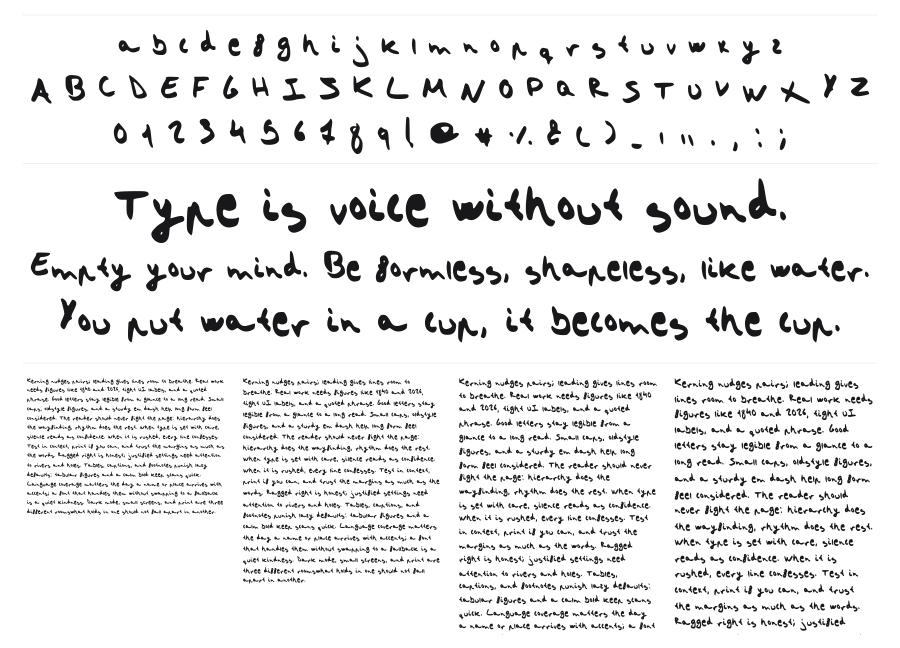 a b c d e f g h i j k l m n o p q r s t u v w x y z
A B C D E F G H I J K L M N O P Q R S T U V W X Y Z
0 1 2 3 4 5 6 7 8 9 ! @ # % & ( ) - ' " . , : ;
Type is voice without sound.
Empty your mind. Be formless, shapeless, like water.
You put water in a cup, it becomes the cup.
Kerning nudges pairs; leading gives lines room to breathe. Real work
needs figures like 1840 and 2026, tight UI labels, and a quoted
phrase. Good letters stay legible from a glance to a long read. Small
caps, oldstyle figures, and a sturdy em dash help long form feel
considered. The reader should never fight the page: hierarchy does
the wayfinding, rhythm does the rest. When type is set with care,
silence reads as confidence. When it is rushed, every line confesses.
Test in context, print if you can, and trust the margins as much as
the words. Ragged right is honest; justified settings need attention
to rivers and holes. Tables, captions, and footnotes punish lazy
defaults: tabular figures and a calm bold keep scans quick.
Language coverage matters the day a name or place arrives with
accents; a font that handles them without swapping to a fallback
is a quiet kindness. Dark mode, small screens, and print are three
different rooms; what holds in one should not fall apart in another.
Kerning nudges pairs; leading gives lines room to
breathe. Real work needs figures like 1840 and 2026,
tight UI labels, and a quoted phrase. Good letters stay
legible from a glance to a long read. Small caps, oldstyle
figures, and a sturdy em dash help long form feel
considered. The reader should never fight the page:
hierarchy does the wayfinding, rhythm does the rest.
When type is set with care, silence reads as confidence.
When it is rushed, every line confesses. Test in context,
print if you can, and trust the margins as much as the
words. Ragged right is honest; justified settings need
attention to rivers and holes. Tables, captions, and
footnotes punish lazy defaults: tabular figures and a
calm bold keep scans quick. Language coverage matters
the day a name or place arrives with accents; a font
that handles them without swapping to a fallback is a
quiet kindness. Dark mode, small screens, and print are
three different rooms; what holds in one should not fall
apart in another.
Kerning nudges pairs; leading gives lines room
to breathe. Real work needs figures like 1840
and 2026, tight UI labels, and a quoted
phrase. Good letters stay legible from a
glance to a long read. Small caps, oldstyle
figures, and a sturdy em dash help long
form feel considered. The reader should never
fight the page: hierarchy does the
wayfinding, rhythm does the rest. When type
is set with care, silence reads as confidence.
When it is rushed, every line confesses. Test
in context, print if you can, and trust the
margins as much as the words. Ragged
right is honest; justified settings need
attention to rivers and holes. Tables,
captions, and footnotes punish lazy defaults:
tabular figures and a calm bold keep scans
quick. Language coverage matters the day
a name or place arrives with accents; a font
Kerning nudges pairs; leading gives
lines room to breathe. Real work needs
figures like 1840 and 2026, tight UI
labels, and a quoted phrase. Good
letters stay legible from a glance to a
long read. Small caps, oldstyle figures,
and a sturdy em dash help long form
feel considered. The reader should
never fight the page: hierarchy does
the wayfinding, rhythm does the rest.
When type is set with care, silence
reads as confidence. When it is
rushed, every line confesses. Test in
context, print if you can, and trust
the margins as much as the words.
Ragged right is honest; justified